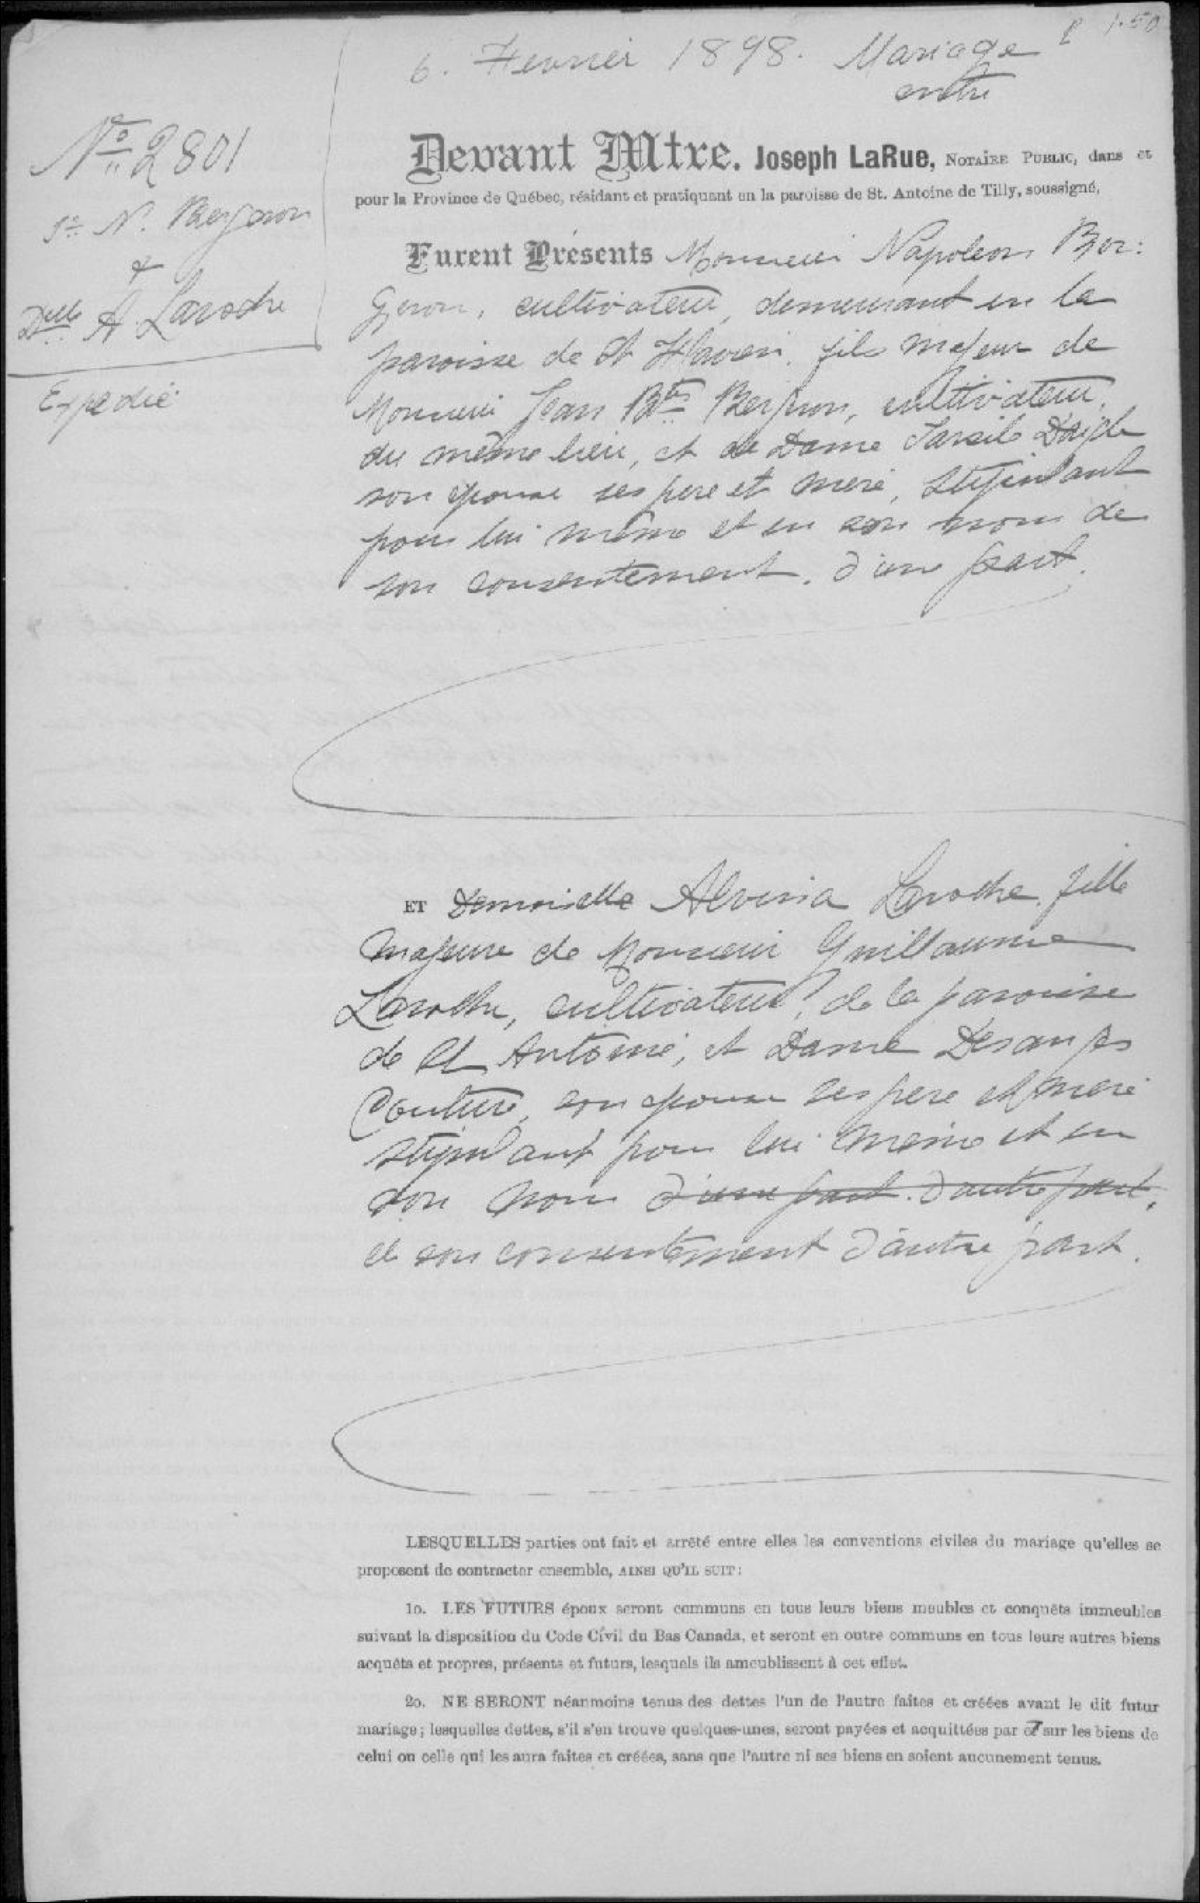 6. Fevrier 1898. Mariage
entre
$ 1.50
No 2801
Sr N. Bergeron
&
Delle A. Laroche
Expedié
Devant Mtre. Joseph LaRue, NOTAIRE PUBLIC, dans et
pour la Province de Québec, résidant et pratiquant en la paroisse de St. Antoine de Tilly, soussigné,
Furent Présents Monsieur Napoleon Ber:
geron, cultivateur, demeurant en la
paroisse de St Flavien, fils majeur de
Monsieur Jean Bte Bergeron, cultivateur,
du même lieu, et de Dame Tarsile Daigle
son epouse ses pere et mere, stipulant
pour lui même et en son nom de
son consentement, d'une part.
ET Demoiselle Alvina Laroche, fille
majeure de Monsieur Guillaume
Laroche, cultivateur, de la paroisse
de St Antoine, et Dame Desanges
Couture, son epouse ses pere et mere
stipulant pour lui meme et en
son nom d'une part. d'autre part,
de son consentement d'autre part.
LESQUELLES parties ont fait et arrêté entre elles les conventions civiles du mariage qu'elles se
proposent de contracter ensemble, AINSI QU'IL SUIT:
1o. LES FUTURS époux seront communs en tous leurs biens meubles et conquêts immeubles
suivant la disposition du Code Civil du Bas Canada, et seront en outre communs en tous leurs autres biens
acquêts et propres, présents et futurs, lesquels ils ameublissent à cet effet.
2o. NE SERONT néanmoins tenus des dettes l'un de l'autre faites et créées avant le dit futur
mariage; lesquelles dettes, s'il s'en trouve quelques-unes, seront payées et acquittées par et sur les biens de
celui ou celle qui les aura faites et créées, sans que l'autre ni ses biens en soient aucunement tenus.